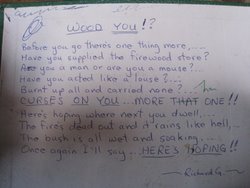 WOOD YOU!?
Before you go there's one thing more,....
Have you supplied the firewood store?
Are you a man or are you a mouse?
Have you acted like a louse?
Burnt up all and carried none?
CURSES ON YOU....MORE THAT ONE!!
Here's hoping where next you dwell....
The fires dead out and it rains like hell,...
The bush is all wet and soaking....
Once again I'll say...HERE'S HOPING!!
Richard G.